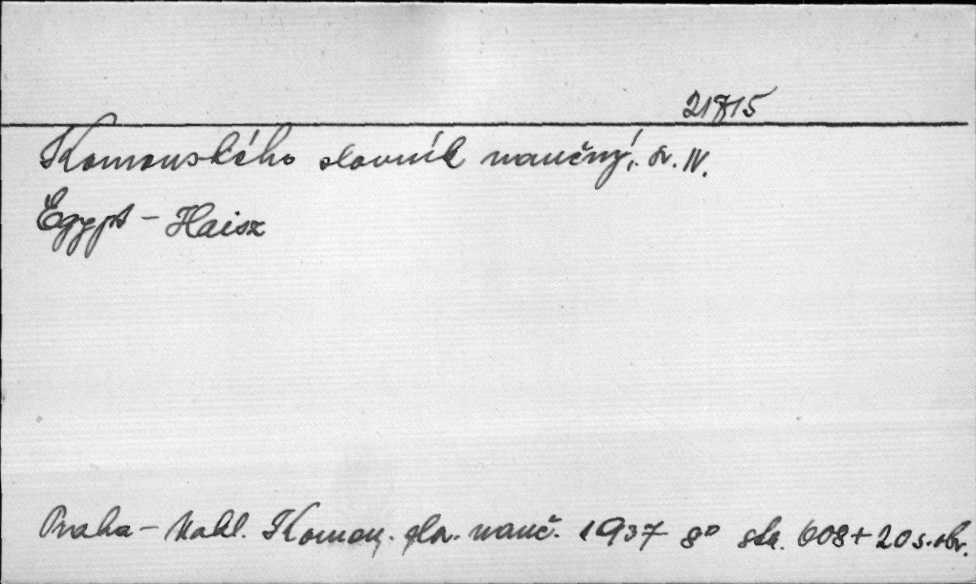 21815
Komenského slovník naučný. Sv. IV.
Egypt - Haisz
Praha - Nakl. Komen. slov. nauč. 1937 8° str. 608 + 20 s. obr.